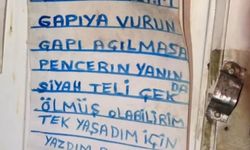 GAPIYA VURUN
GAPI AÇILMASA
PENCERİN YANIN
DA
SİYAH TELİ ÇEK
ÖLMÜŞ OLABİLİRİM
TEK YAŞADIM İÇİN
YAZDIM